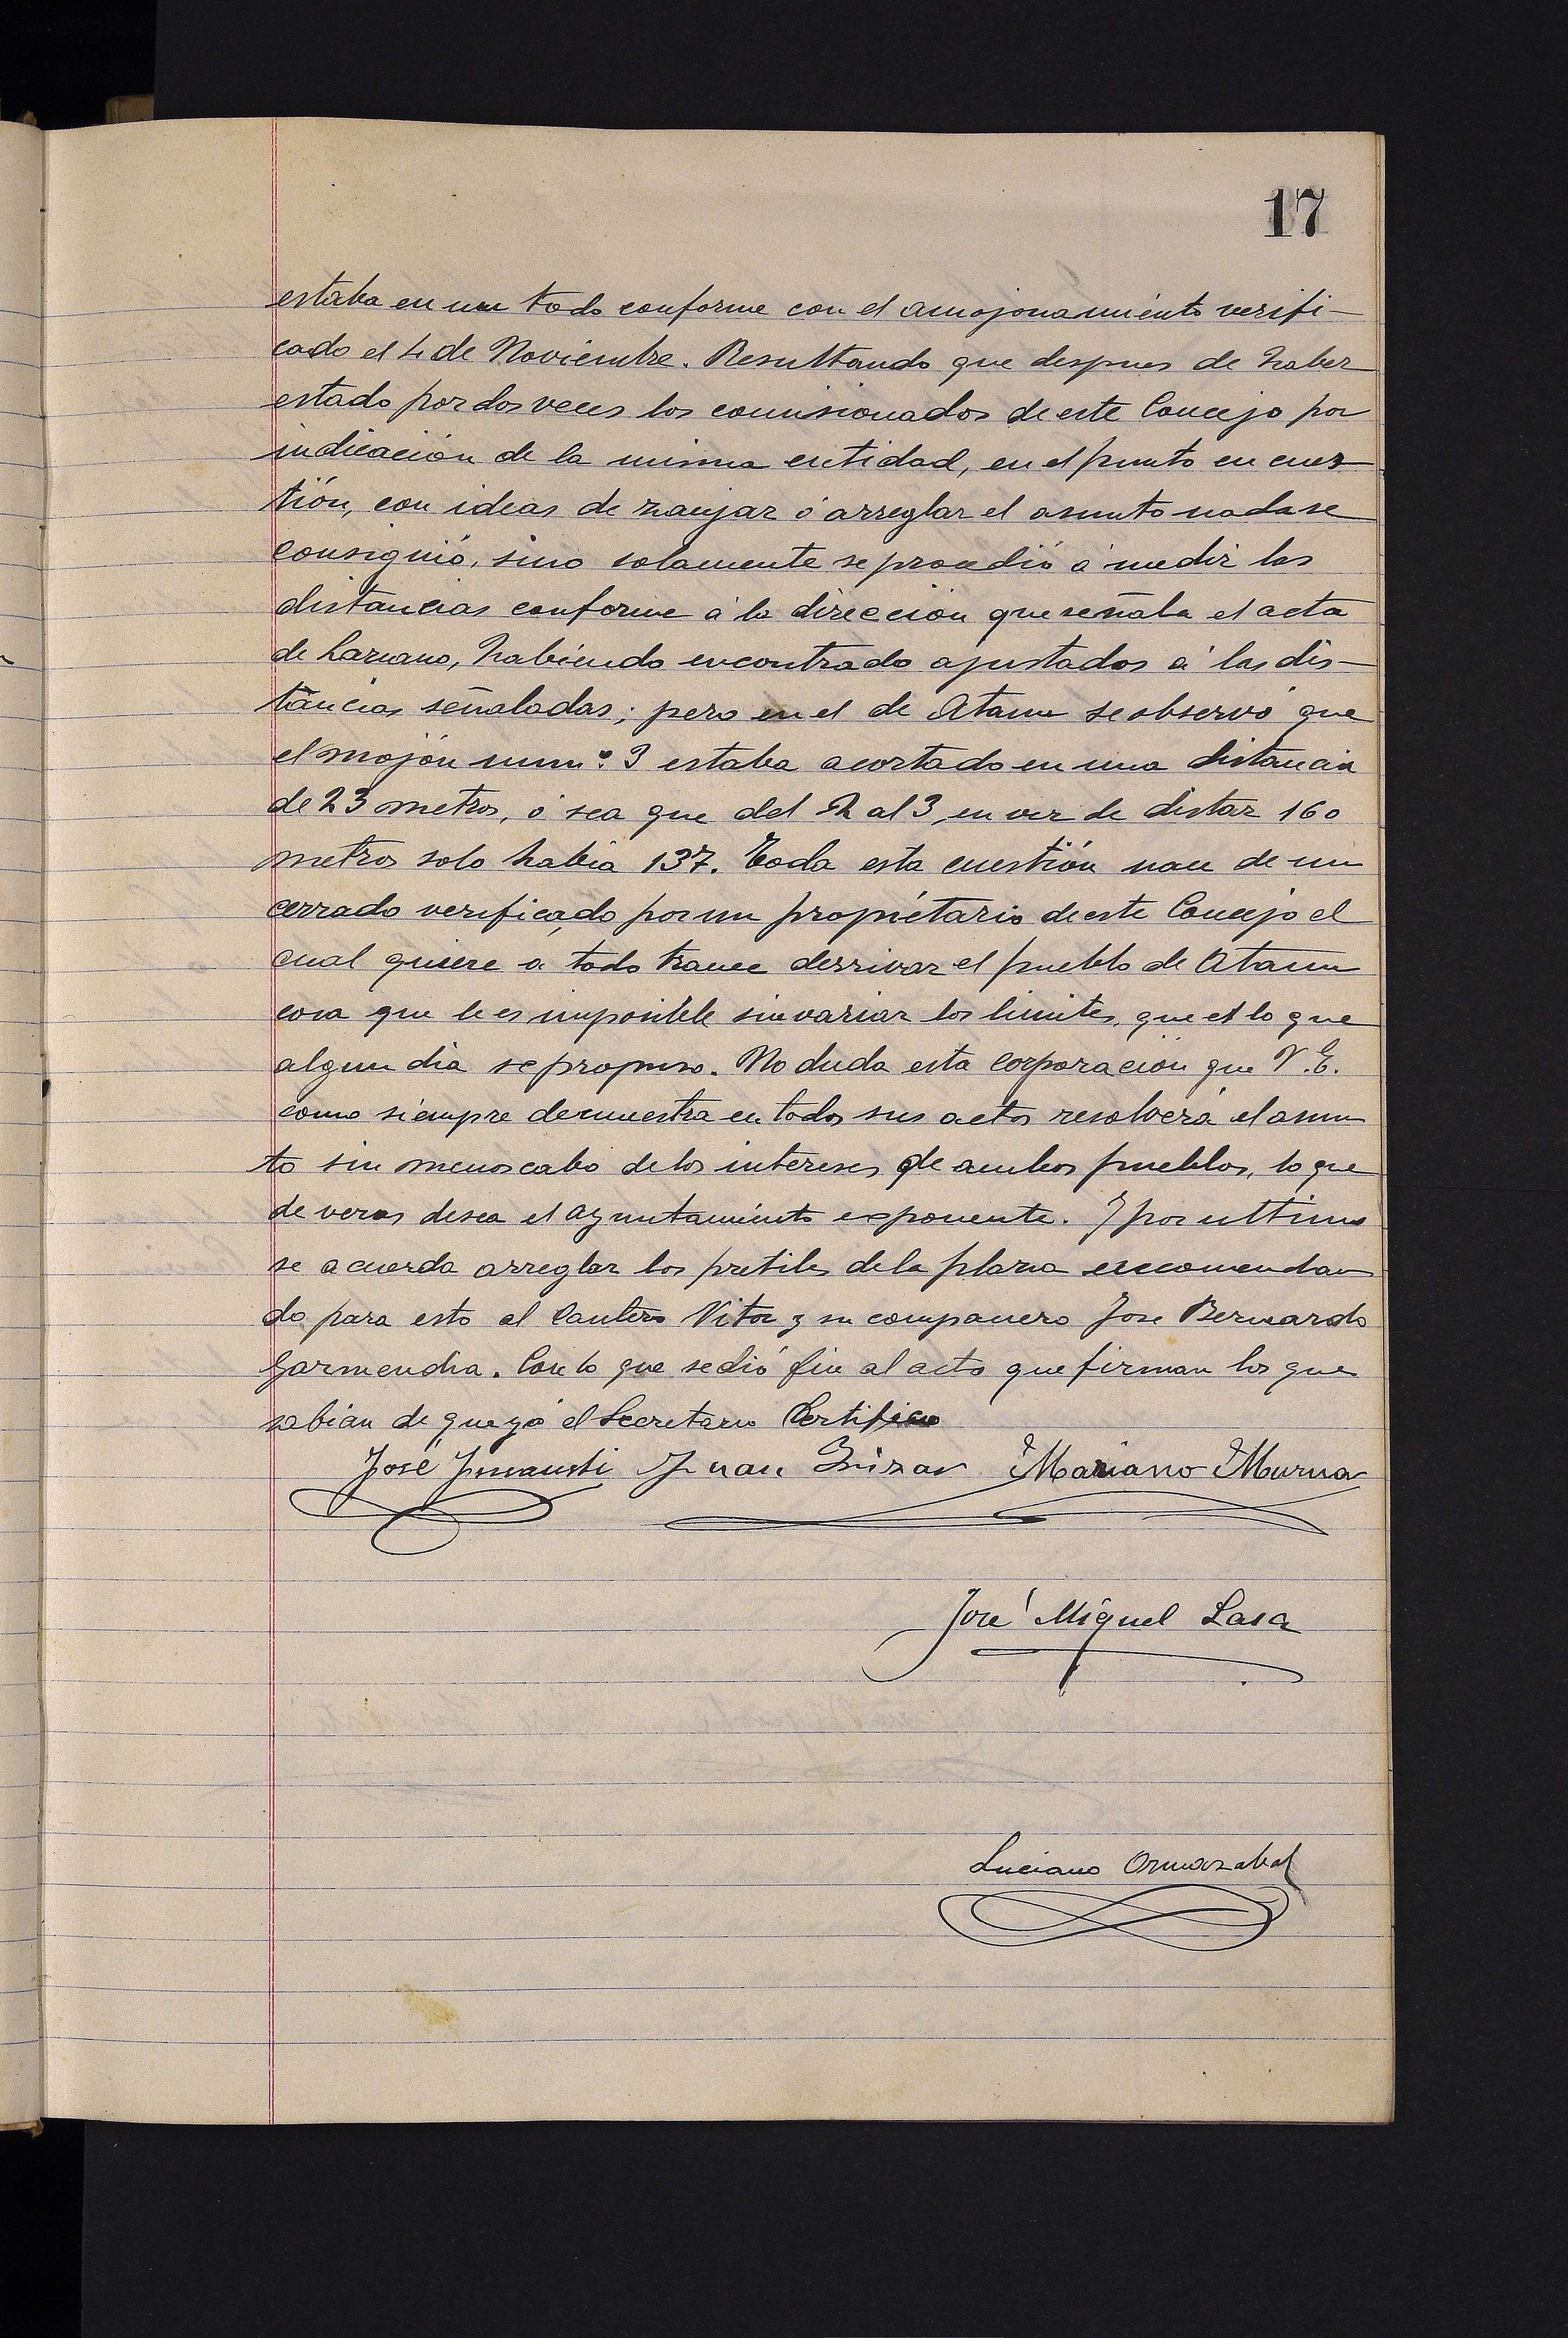 17
estaba en un todo conforme con el amojonamiento verifi-
cado el 4 de Noviembre. Resultando que despues de haber
estado por dos veces los comisionados de este Concejo por
indicación de la misma entidad, en el punto en cues
tión, con ideas de zanjar ó arreglar el asunto nada se
consiguió, sino solamente se procedió á medir las
distancias conforme á la dirección que señala el acta
de Lazcano, habiendo encontrado ajustados á las dis-
tancias señaladas; pero en el de Ataun se observó que
el mojón num.º 3 estaba acortado en una distancia
de 23 metros, ó sea que del 2 al 3, en vez de distar 160
metros solo habia 137. Toda esta cuestión nace de un
cerrado verificado por un propietario de este Concejo el
cual quiere a todo trance derrivar el pueblo de Ataun
cosa que le es imposible sin variar los limites, que es lo que
algun dia se propuso. No duda esta Corporación que V.E.
como siempre demuestra en todos sus actos resolverá el asun
to sin menoscabo de los intereses de ambos pueblos, lo que
de veras desea el Ayuntamiento exponente. Y por ultimo
se acuerda arreglar los pretiles de la plaza encomendan
do para esto al Cantero Vitor y su companero Jose Bernardo
Garmendia. Con lo que se dió fin al acto que firman los que
sabian de que yo el Secretario Certifico
José Juan Mariano Murua
José Miguel Lasa
Luciano Ormazabal